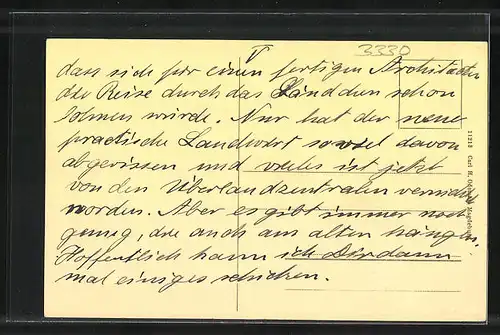 V
3330
dass sich für einen fertigen Architecten
die Reise durch das Ländchen schon
lohnen würde. Nur hat der neue
practische Landwirt soviel davon
abgerissen und vieles ist jetzt
von den Überlandzentralen
worden. Aber es gibt immer noch
genug, die auch am alten hängen.
Hoffentlich kann ich Dir dann
mal einiges schicken.
11218 Carl H. Magdeburg